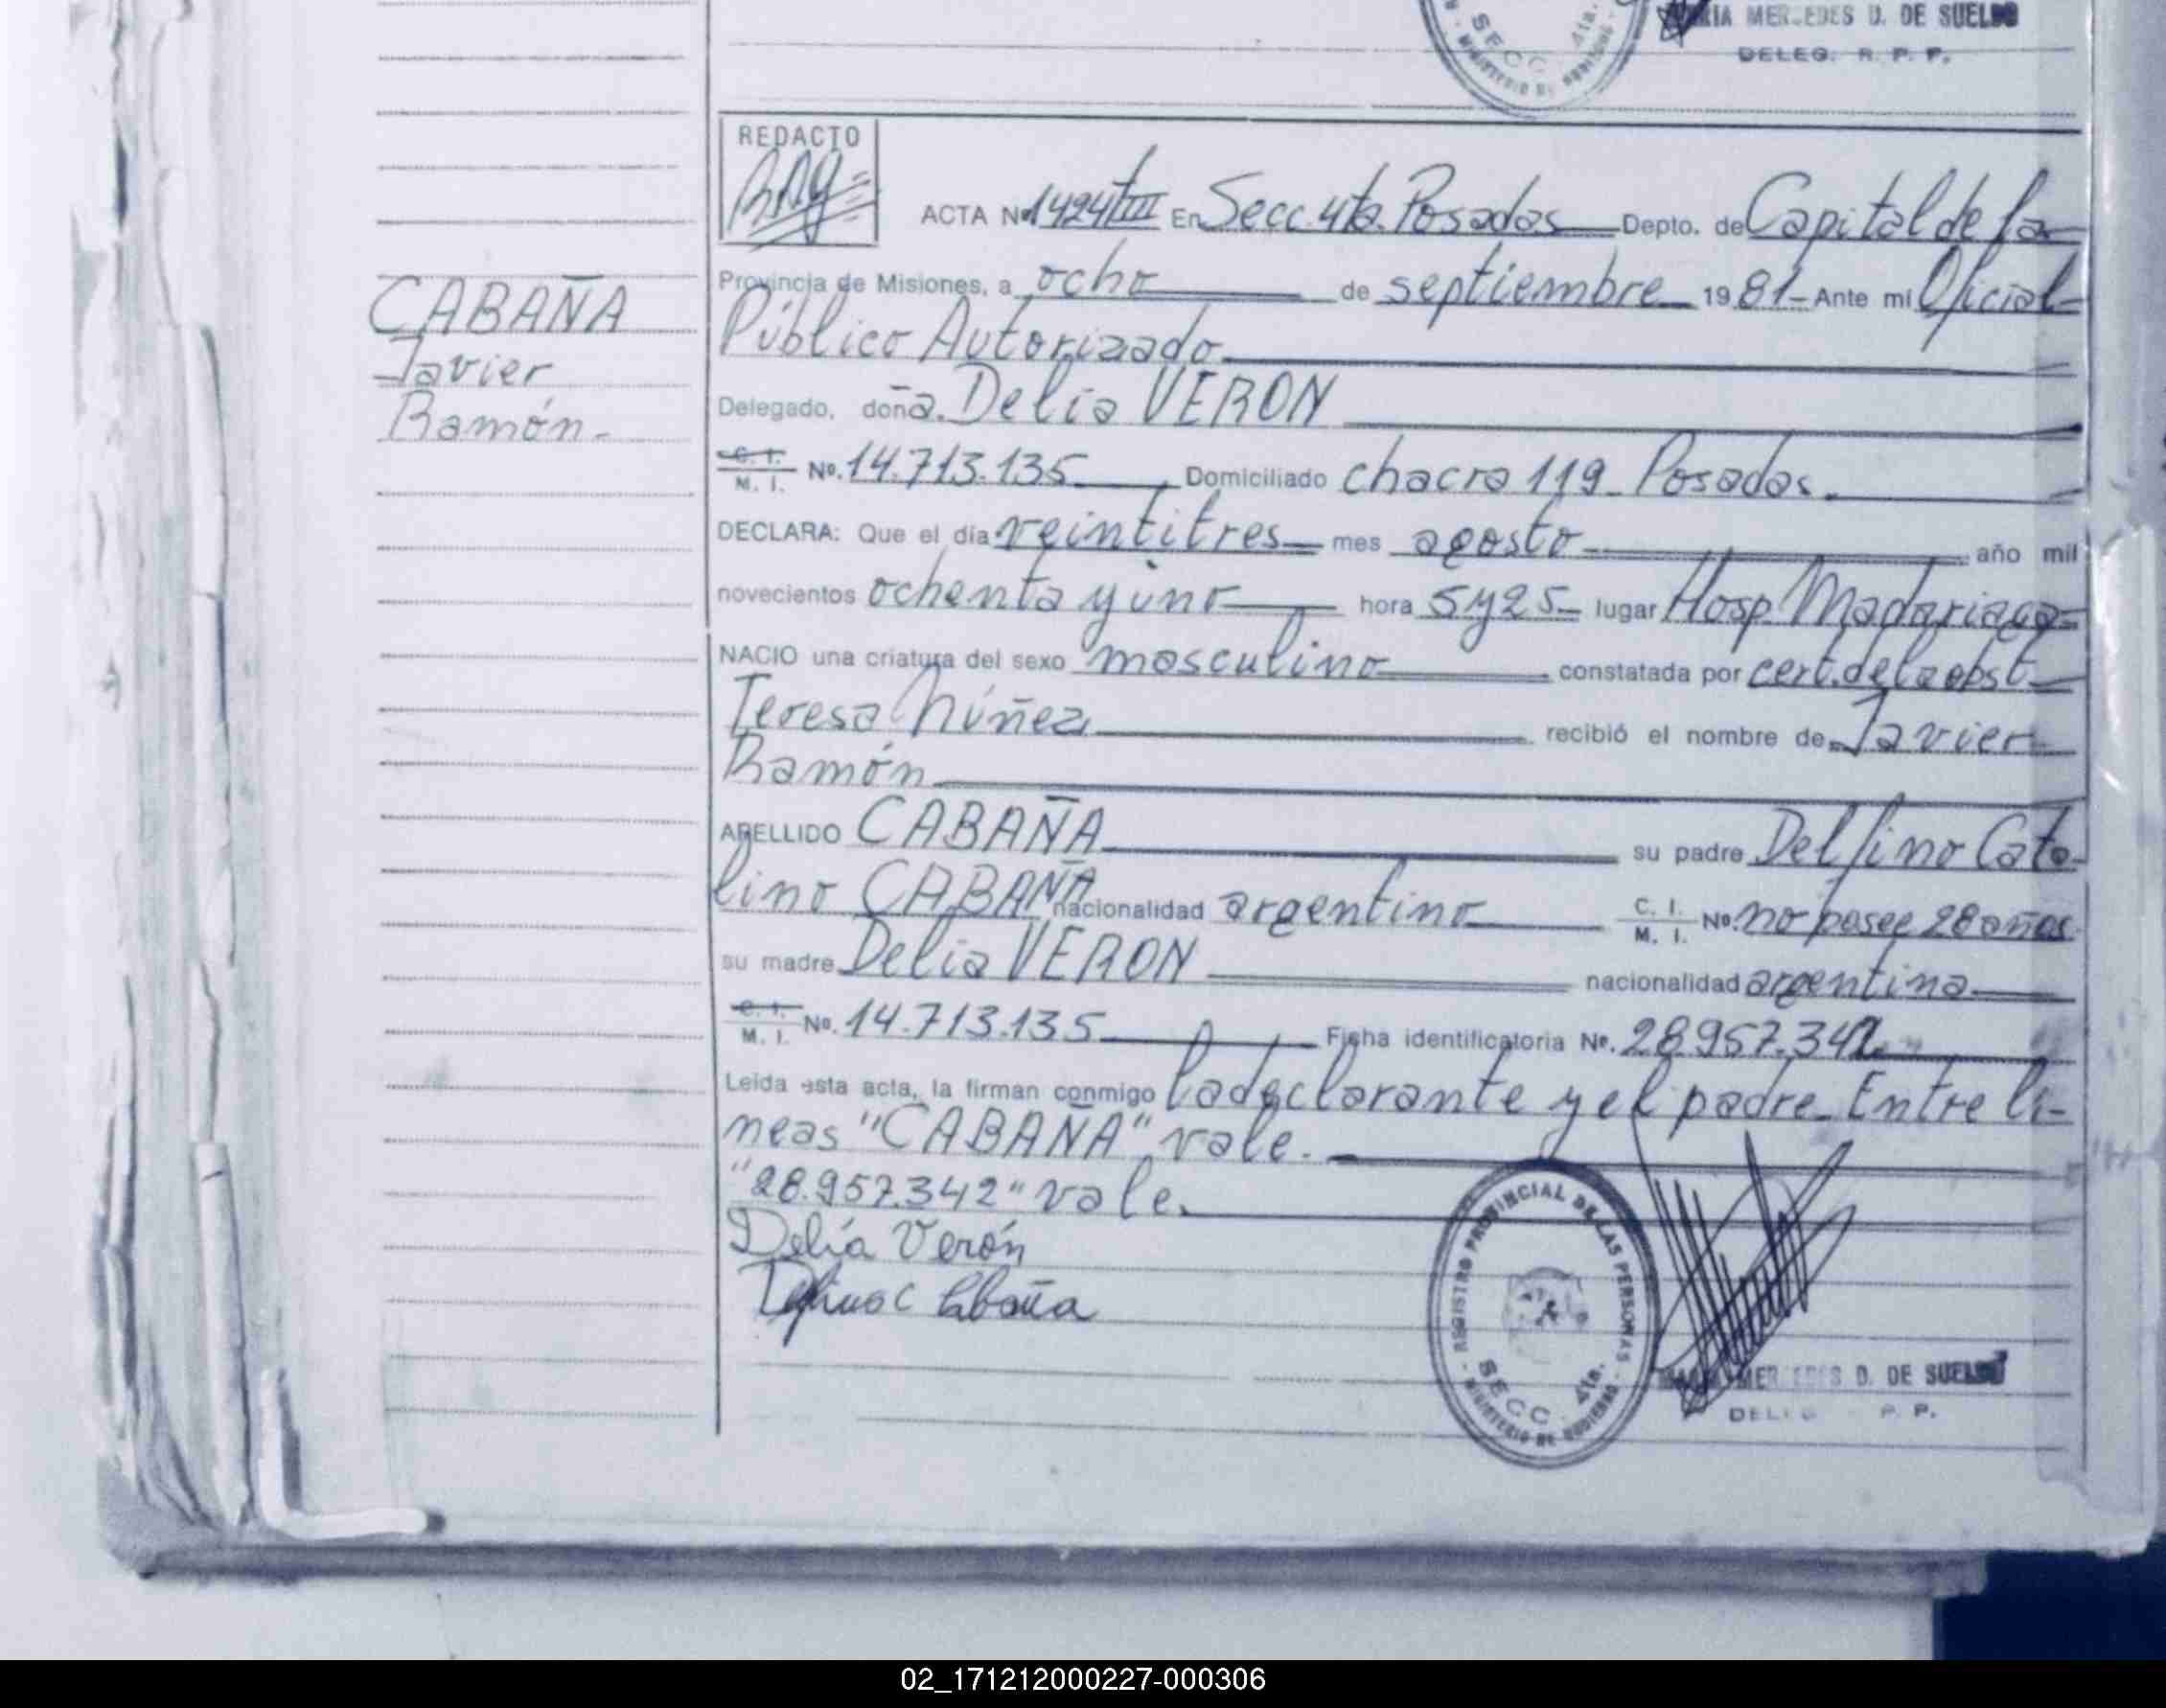 MARIA MERCEDES D. DE SUELDO
DELEG. R. P. P.
SECC. 4ta.
MINISTERIO DE GOBIERNO
REDACTO
ACTA Nº 1424/III En Secc. 4ta. Posadas Depto. de Capital de la
Provincia de Misiones, a ocho de septiembre 1981- Ante mi Oficial
Público Autorizado
CABAÑA
Javier
Ramón.-
Delegado, doña. Delia VERON
C. I. M. I. Nº. 14.713.135 Domiciliado chacra 119 - Posadas.
DECLARA: Que el día veintitres mes agosto año mil
novecientos ochenta y uno hora 5 y 25 lugar Hosp. Madariaga
NACIO una criatura del sexo masculino constatada por cert. de la obst.
Teresa Núñez recibió el nombre de Javier
Ramón
APELLIDO CABAÑA su padre Delfino Cata-
lino CABAÑA nacionalidad argentino C. I. M. I. Nº. no posee 28 años
su madre Delia VERON nacionalidad argentina
C. I. M. I. Nº. 14.713.135 Ficha identificatoria Nº. 28.957.342
Leída esta acta, la firman conmigo la declarante y el padre. Entre lí-
neas "CABAÑA" vale.
"28.957.342" vale.
Delia Verón
Delfino C Cabaña
REGISTRO PROVINCIAL DE LAS PERSONAS
SECC. 4ta.
MINISTERIO DE GOBIERNO
MARIA MERCEDES D. DE SUELDO
DELEG. R. P. P.
02_171212000227-000306